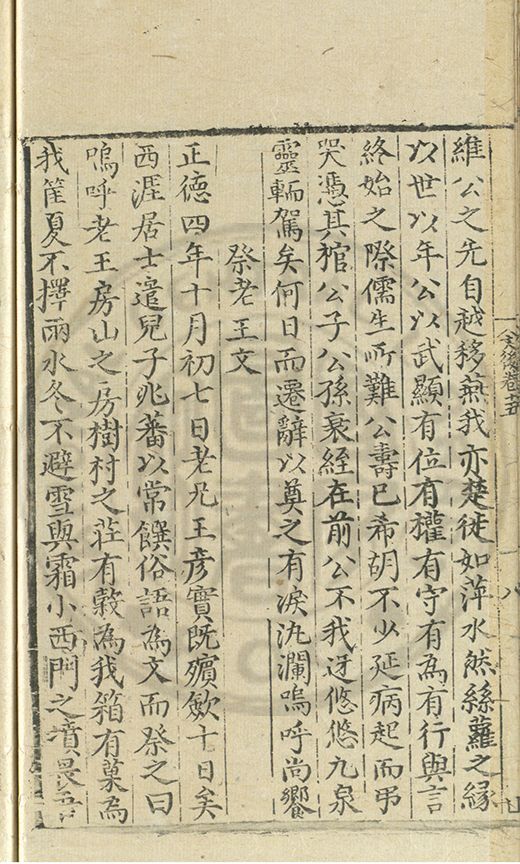 維公之先自越移燕我亦楚徙如萍水然絲蘿之緣
以世以年公以武顯有位有權有守有為有行與言
終始之際儒生所難公壽已希胡不少延病起而弔
哭憑其棺公子公孫衰絰在前公不我迓悠悠九泉
靈輀駕矣何日而遷辭以奠之有淚汍瀾嗚呼尚饗
祭老王文
正德四年十月初七日老兄王彥實既殯斂十日矣
西涯居士遣兒子兆蕃以常饌俗語為文而祭之曰
嗚呼老王房山之房樹村之莊有穀為我箱有菓為
我筐夏不擇雨水冬不避雪與霜小西門之墳畏吾
後卷十五
八